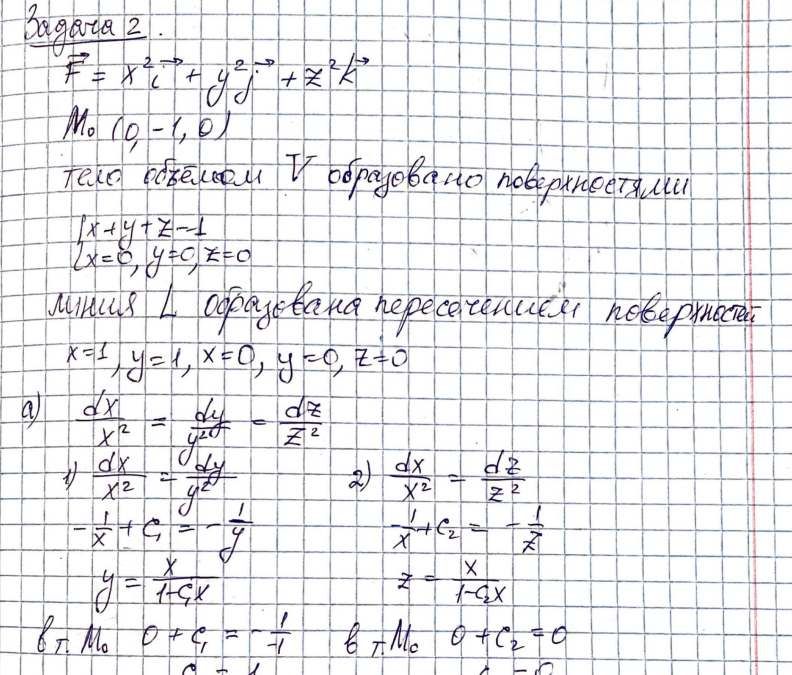 Задача 2.
F⃗ = x²i⃗ + y²j⃗ + z²k⃗
M₀ (0, -1, 0)
тело объёмом V образовано поверхностями
{x+y+z-1
{x=0, y=0, z=0
линия L образована пересечением поверхностей
x=1, y=1, x=0, y=0, z=0
а) dx/x² = dy/y² = dz/z²
1) dx/x² = dy/y² 2) dx/x² = dz/z²
-1/x + C₁ = -1/y -1/x + C₂ = -1/z
y = x/(1-C₁x) z = x/(1-C₂x)
в т. M₀ 0 + C₁ = -1/-1 в т. M₀ 0 + C₂ = 0